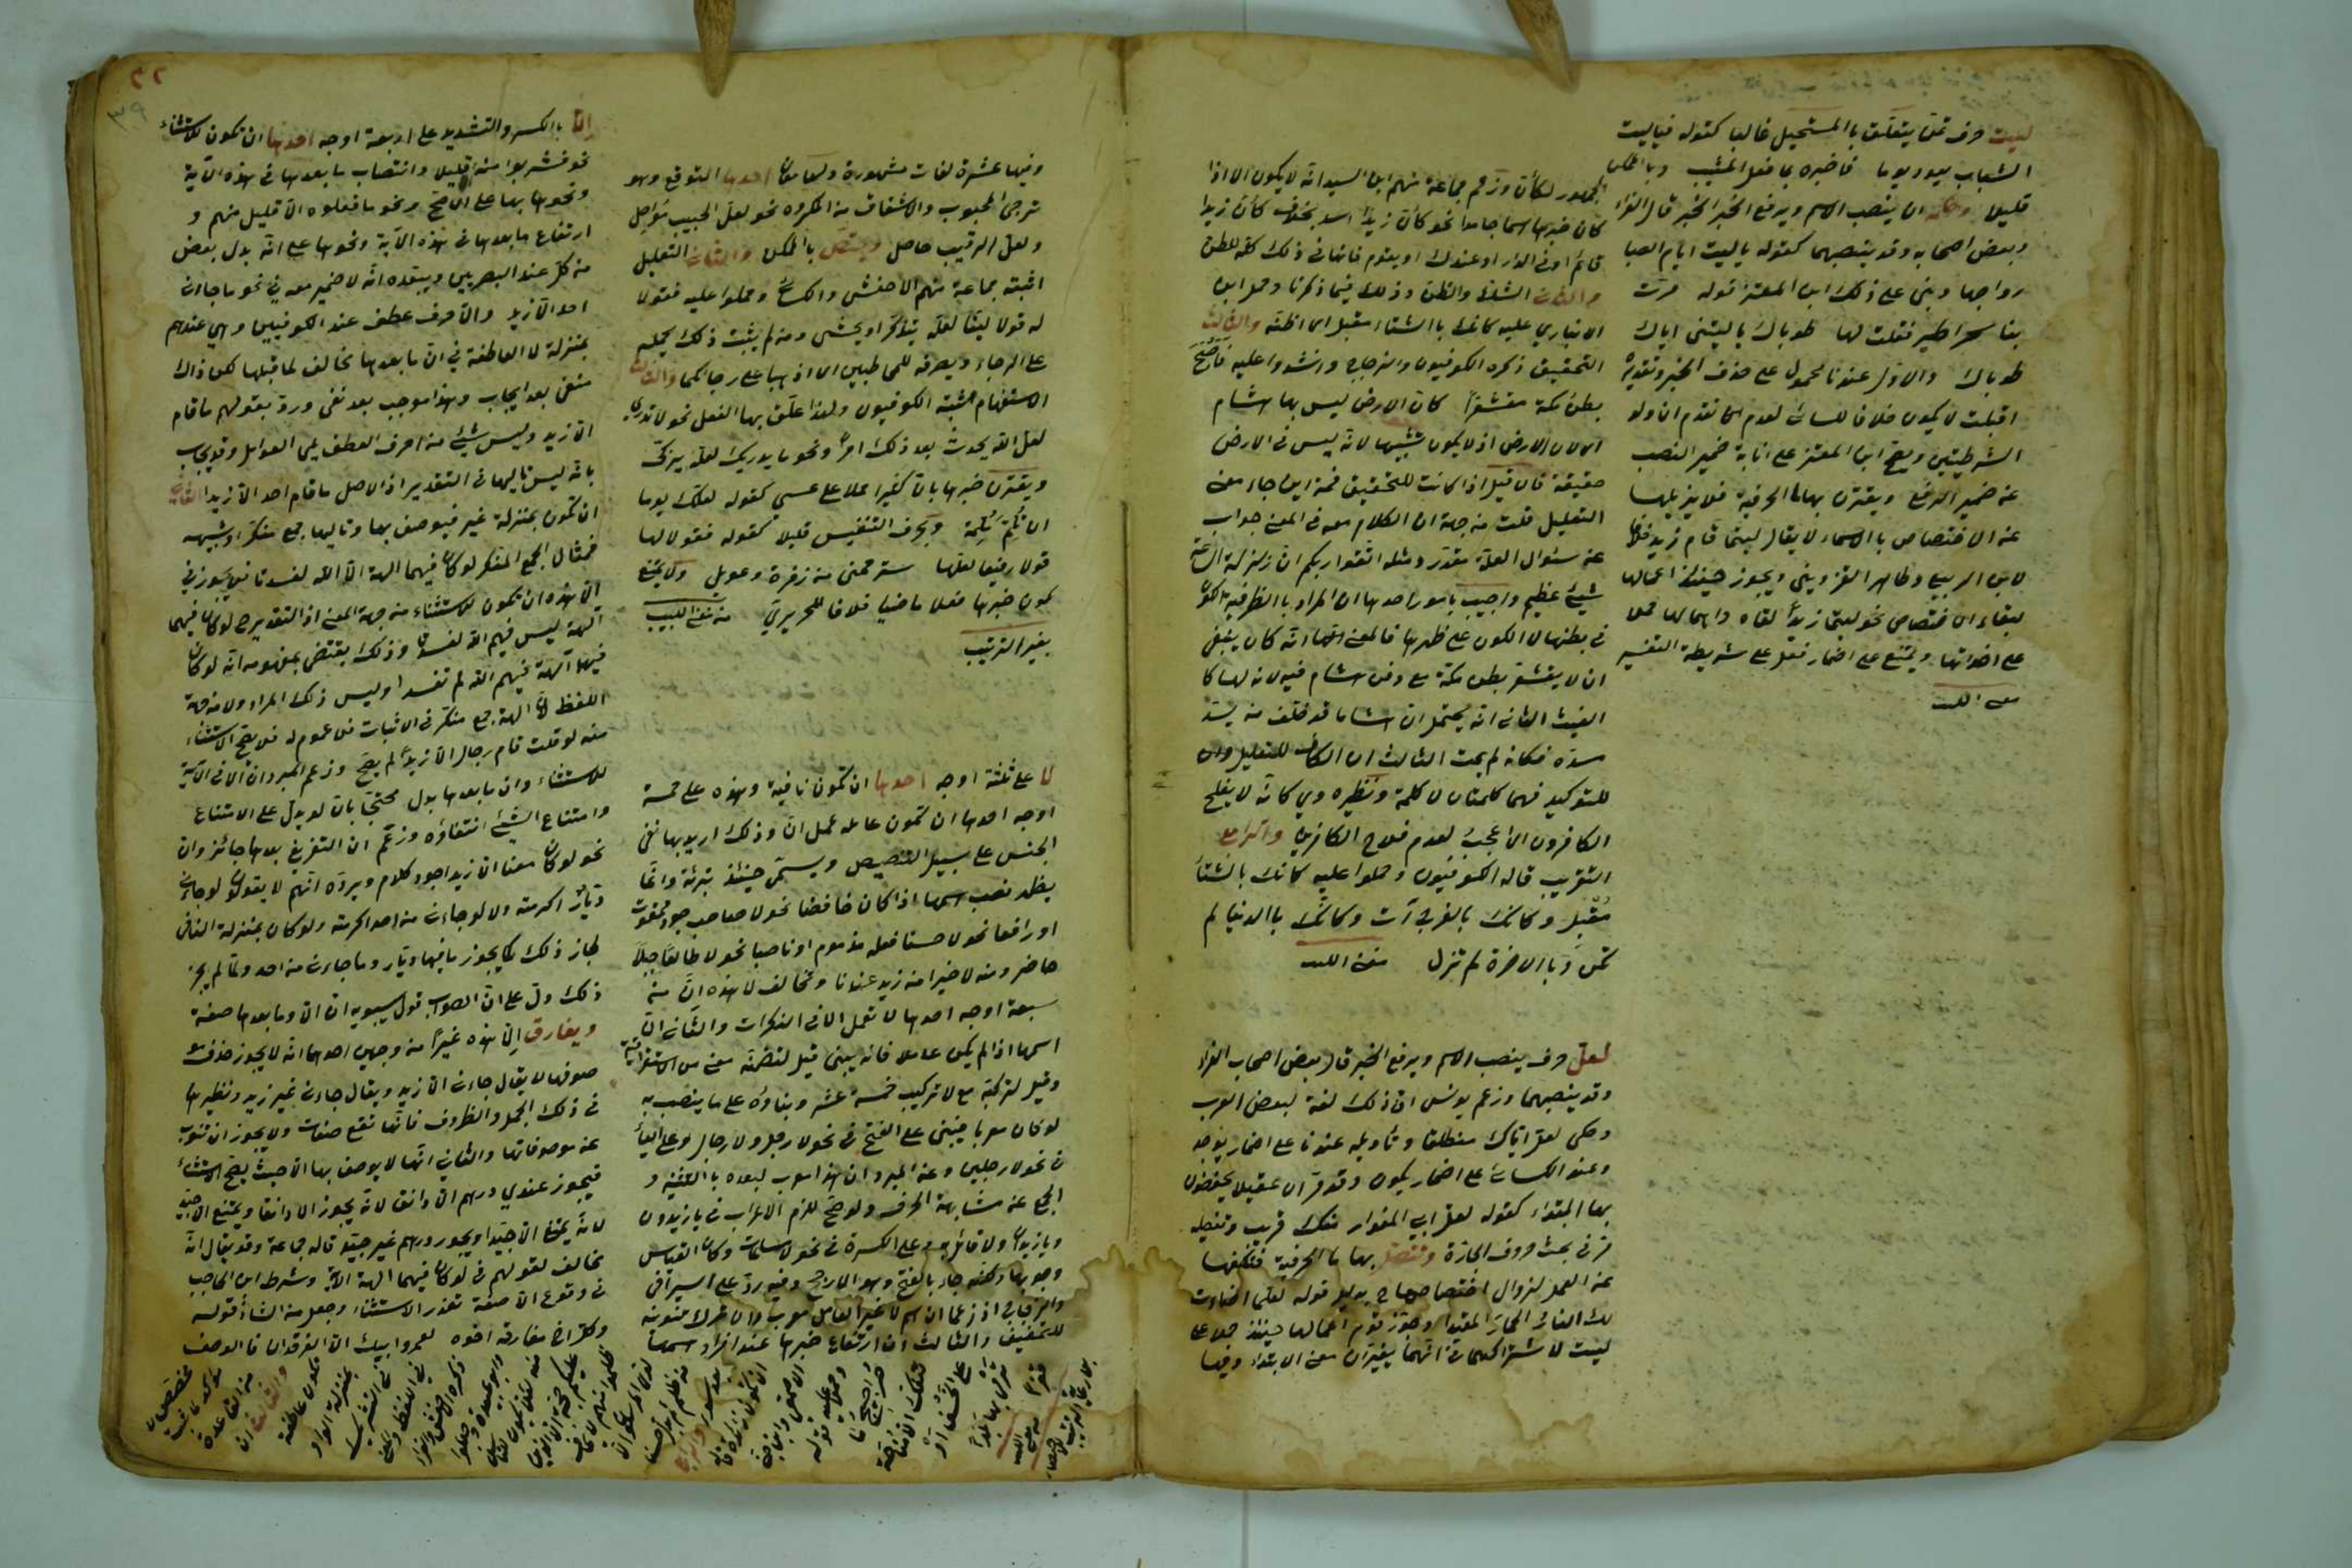 ليت حرف تمنّ يتعلّق بالمستحيل غالبا كقوله فياليت
الشباب يعود يوما فاخبره بما فعل المشيب وبالممكن
قليلا وحكمه ان ينصب الاسم ويرفع الخبر قال الفراء
وبعض اصحابه وقد ينصبهما كقوله يا ليت ايام الصبا
رواجعا وبنى على ذلك ابن المعتز قوله مرّت
بنا سحرا طير فقلت لها طوباك يا ليتنى اياك
طوباك والاول عندنا محمول على حذف الخبر وتقديره
اقبلت لا يكون خلافا للكسائى لعدم تقدم ان ولو
الشرطيتين ويصح ابن المعتز على انابة ضمير النصب
عن ضمير الرفع ويقترن بها ما الحرفية فلا يزيلها
عن الاختصاص بالاسماء لا يقال ليتما قام زيد خلافا
لابن ابى الربيع وطاهر القزوينى ويجوز حينئذ اعمالها
لبقاء الاختصاص نحو ليتما زيداً لقاه واهمالها حملا
على اخواتها ويمتنع على اضمار فعل على شريطة التفسير
الجمهور لكأنّ وزعم جماعة منهم ابن السيد انه لا يكون الا اذا
كان خبرها اسما جامدا نحو كأن زيدا اسد بخلاف كأن زيدا
قائم او فى الدار او عندك او يقوم فانها فى ذلك كله للظن
والثانى الشك والظن وذلك فيما ذكرنا وحمل ابن
الانبارى عليه كانك بالشتاء مقبل اى اظنه والثالث
التحقيق ذكره الكوفيون والزجاج وانشدوا عليه فاصبح
بطن مكة مقشعرّا كان الارض ليس بها هشام
اى لان الارض اذ لا يكون تشبيها لانه ليس فى الارض
حقيقة فان قيل اذا كانت للتحقيق فمن اين جاء معنى
التعليل قلت من جهة ان الكلام معه فى المعنى جواب
عن سئوال العلة مقدّر ومثله اتقوا ربكم ان زلزلة الساعة
شيئ عظيم واجيب بامور احدها ان المراد بالظرفية الكون
فى بطنها لا الكون على ظهرها فالمعنى انه كان ينبغى
ان لا يقشعر بطن مكة مع دفن هشام فيه لانه لها كا
لغيث الثانى انه يحتمل ان هشاما قد خلّف من يسدّ
مسدّه فكانه لم يمت الثالث ان الكاف للتعليل وان
للتوكيد فهما كلمتان لا كلمة ونظيره ويكانّه لا يفلح
الكافرون اى اعجب لعدم فلاح الكافرين والرابع
التقريب قاله الكوفيون وحملوا عليه كانك بالشتاء
مُقبِل وكانك بالفرج آت وكانّك بالدنيا لم
تكن وبالاخرة لم تزل
لعل حرف ينصب الاسم ويرفع الخبر قال بعض اصحاب الفراء
وقد ينصبهما وزعم يونس انّ ذلك لغة لبعض العرب
وحكى لعل اباك منطلقا وتأويله عندنا على اضمار يوجد
وعند الكسائى على اضمار يكون وقد مرّ ان عقيلا يخفضون
بها المبتداء كقوله لعل ابى المغوار منك قريب وتفصيله
مرّ فى بحث حروف الجارّة وتتصل بها ما الحرفية فتكفها
عن العمل لزوال اختصاصها ح بدليل قوله لعلما اضاءت
لك النار الحمار المقيدا وجوّز قوم اعمالها حينئذ حملا على
ليت لاشتراكهما فى انهما يغيّران معنى الابتداء وفيها
وفيها عشرة لغات مشهورة ولها معان احدها التوقع وهو
ترجى المحبوب والاشفاق من المكروه نحو لعل الحبيب مواصل
ولعل الرقيب حاصل ويختص بالممكن والثانى التعليل
اثبته جماعة منهم الاخفش والكسائى وحملوا عليه فقولا
له قولا لينّا لعلّه يتذكر او يخشى ومن لم يثبت ذلك يحمله
على الرجاء ويصرفه للمخاطبين اى اذهبا على رجائكما والثالث
الاستفهام اثبته الكوفيون ولهذا علّق بها الفعل نحو لا تدرى
لعل الله يحدث بعد ذلك امراً ونحو ما يدريك لعلّه يزكّى
ويقترن خبرها بان كثيرا حملا على عسى كقوله لعلّك يوما
ان تلمّ مُلِمّة وبحرف التنفيس قليلا كقوله فقولا لها
قولا رفيقا لعلها سترحمنى من زفرة وعويل ولا يمتنع
كون خبرها فعلا ماضيا خلافا للحريريّ من مغنى اللبيب
بغير الترتيب
لا على ثلثة اوجه احدها ان تكون نافية وهذه على خمسة
اوجه احدها ان تكون عاملة عمل انّ وذلك اريد بها نفى
الجنس على سبيل التنصيص ويسمّى حينئذ تبرئة وانما
يظهر نصب اسمها اذا كان خافضا نحو لا صاحب جود ممقوت
او رافعا نحو لا حسنا فعله مذموم او ناصبا نحو لا طالعا جبلا
حاضر ومنه لا خيرا من زيد عندنا وتخالف لا هذه انّ من
سبعة اوجه احدها لا تعمل الا فى النكرات والثانى انّ
اسمها اذا لم يكن عاملا فانه يبنى قيل لتضمنه معنى من الاستغراقية
وقيل لتركبه مع لا تركيب خمسة عشر وبناؤه على ما ينصب به
لو كان معربا فيبنى على الفتح فى نحو لا رجل ولا رجال وعلى الياء
فى نحو لا رجلين وعن المبرد ان هذا معرب لبعده بالتثنية و
الجمع عن مشابهة الحرف ولو صحّ للزم الاعراب فى يا زيدون
ويا زيدان ولا قائل به وعلى الكسرة فى نحو لا مسلمات وكان القياس
وجوبها ولكنه جاء بالفتح وهو الارجح وفيه ردّ على السيرافى
والزجاج اذ زعما ان اسم لا غير العامل معرب وان ترك تنوينه
للتخفيف والثالث ان ارتفاع خبرها عند افراد اسمها
٣٢
٣٩
الّا بالكسر والتشديد على اربعة اوجه احدها ان تكون للاستثناء
نحو فشربوا منه الا قليلا وانتصاب ما بعدها فى هذه الآية
ونحوها بها على الاصحّ ونحو ما فعلوه الّا قليل منهم و
ارتفاع ما بعدها فى هذه الآية ونحوها على انه بدل بعض
من كلّ عند البصريين ويبعّده انّه لا ضمير معه فى نحو ما جاءنى
احد الّا زيد والّا حرف عطف عند الكوفيين وهى عندهم
بمنزلة لا العاطفة فى انّ ما بعدها مخالف لما قبلها لكن ذاك
منفى بعد ايجاب وهذا موجب بعد نفى وردّ بقولهم ما قام
الّا زيد وليس شيئ من احرف العطف يلى العوامل وقد يجاب
بانّه ليس تاليها فى التقدير اذ الاصل ما قام احد الّا زيد الثانى
ان تكون بمنزلة غير فيوصف بها وتاليها جمع منكّر او شبهه
فمثال الجمع المنكر لو كان فيهما آلهة الّا الله لفسدتا فلا يجوز فى
الّا هذه ان تكون للاستثناء من جهة المعنى اذ التقدير ح لو كان فيهما
آلهة ليس فيهم الله لفسدتا وذلك يقتضى بمفهومه انّه لو كان
فيهما آلهة فيهم الله لم تفسدا وليس ذلك المراد ولا من جهة
اللفظ لانّ آلهة جمع منكّر فى الاثبات فلا عموم له فلا يصح الاستثناء
منه لو قلت قام رجال الّا زيداً لم يصحّ وزعم المبرد انّ الا فى الآية
للاستثناء وان ما بعدها بدل محتجّا بانّ لو يدلّ على الامتناع
وامتناع الشيئ انتفاؤه وزعم ان التفريغ بعدها جائز وان
نحو لو كان معنا الّا زيد اجود كلام ويردّه انّهم لا يقولون لو جاءنى
ديّار اكرمته ولا لو جاءنى من احد اكرمته ولو كان بمنزلة النافى
لجاز ذلك كما يجوز ما فيها ديّار وما جاءنى من احد ولمّا لم يجز
ذلك دلّ على انّ الصواب قول سيبويه ان الّا وما بعدها صفة
ويفارق الّا هذه غيراً من وجهين احدهما انّه لا يجوز حذف مو
صوفها لا يقال جاءنى الّا زيد ويقال جاءنى غير زيد ونظيرها
فى ذلك الجمل والظروف فانّها تقع صفات ولا يجوز ان تنوب
عن موصوفاتها والثانى انّها لا يوصف بها الّا حيث يصحّ الاستثناء
فيجوز عندي درهم الّا دانق لانّه يجوز الا دانقا ويمتنع الّا جيّد
لانّه يمتنع الّا جيّدا ويجوز درهم غير جيّد قاله جماعة وقد يقال انّه
مخالف لقولهم فى لو كان فيهما آلهة الّا الله وشرط ابن الحاجب
فى وقوع الّا صفة تعذر الاستثناء وجعل من الشاذّ قوله
وكلّ اخ مفارقه اخوه لعمر ابيك الّا الفرقدان فالوصف